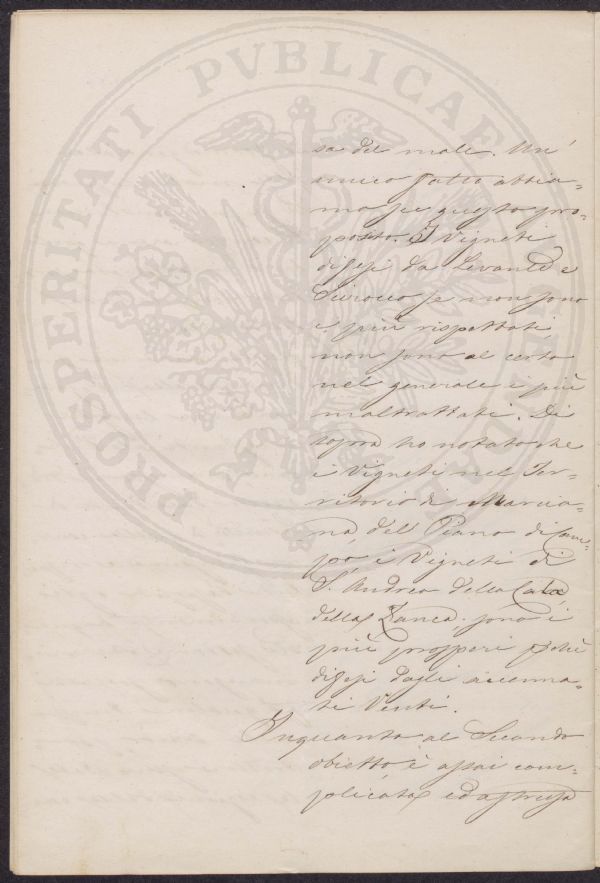 PROSPERITATI PVBLICAE
sa del male. Un'
unico fatto abbia-
mo su questo pro-
posito. I Vigneti
difesi da Levante e
Scirocco se non sono
i più rispettati
non sono al certo
nel generale i più
maltrattati. Di
sopra ho notato che
i Vigneti nel Ter-
ritorio di Marcia-
na, del Piano di Cam-
po, i Vigneti di
S. Andrea della Cala,
della Zanca, sono i
più prosperi perchè
difesi dagli accenna-
ti Venti.
Inquanto al Secondo
obietto è assai com-
plicata ed astrusa